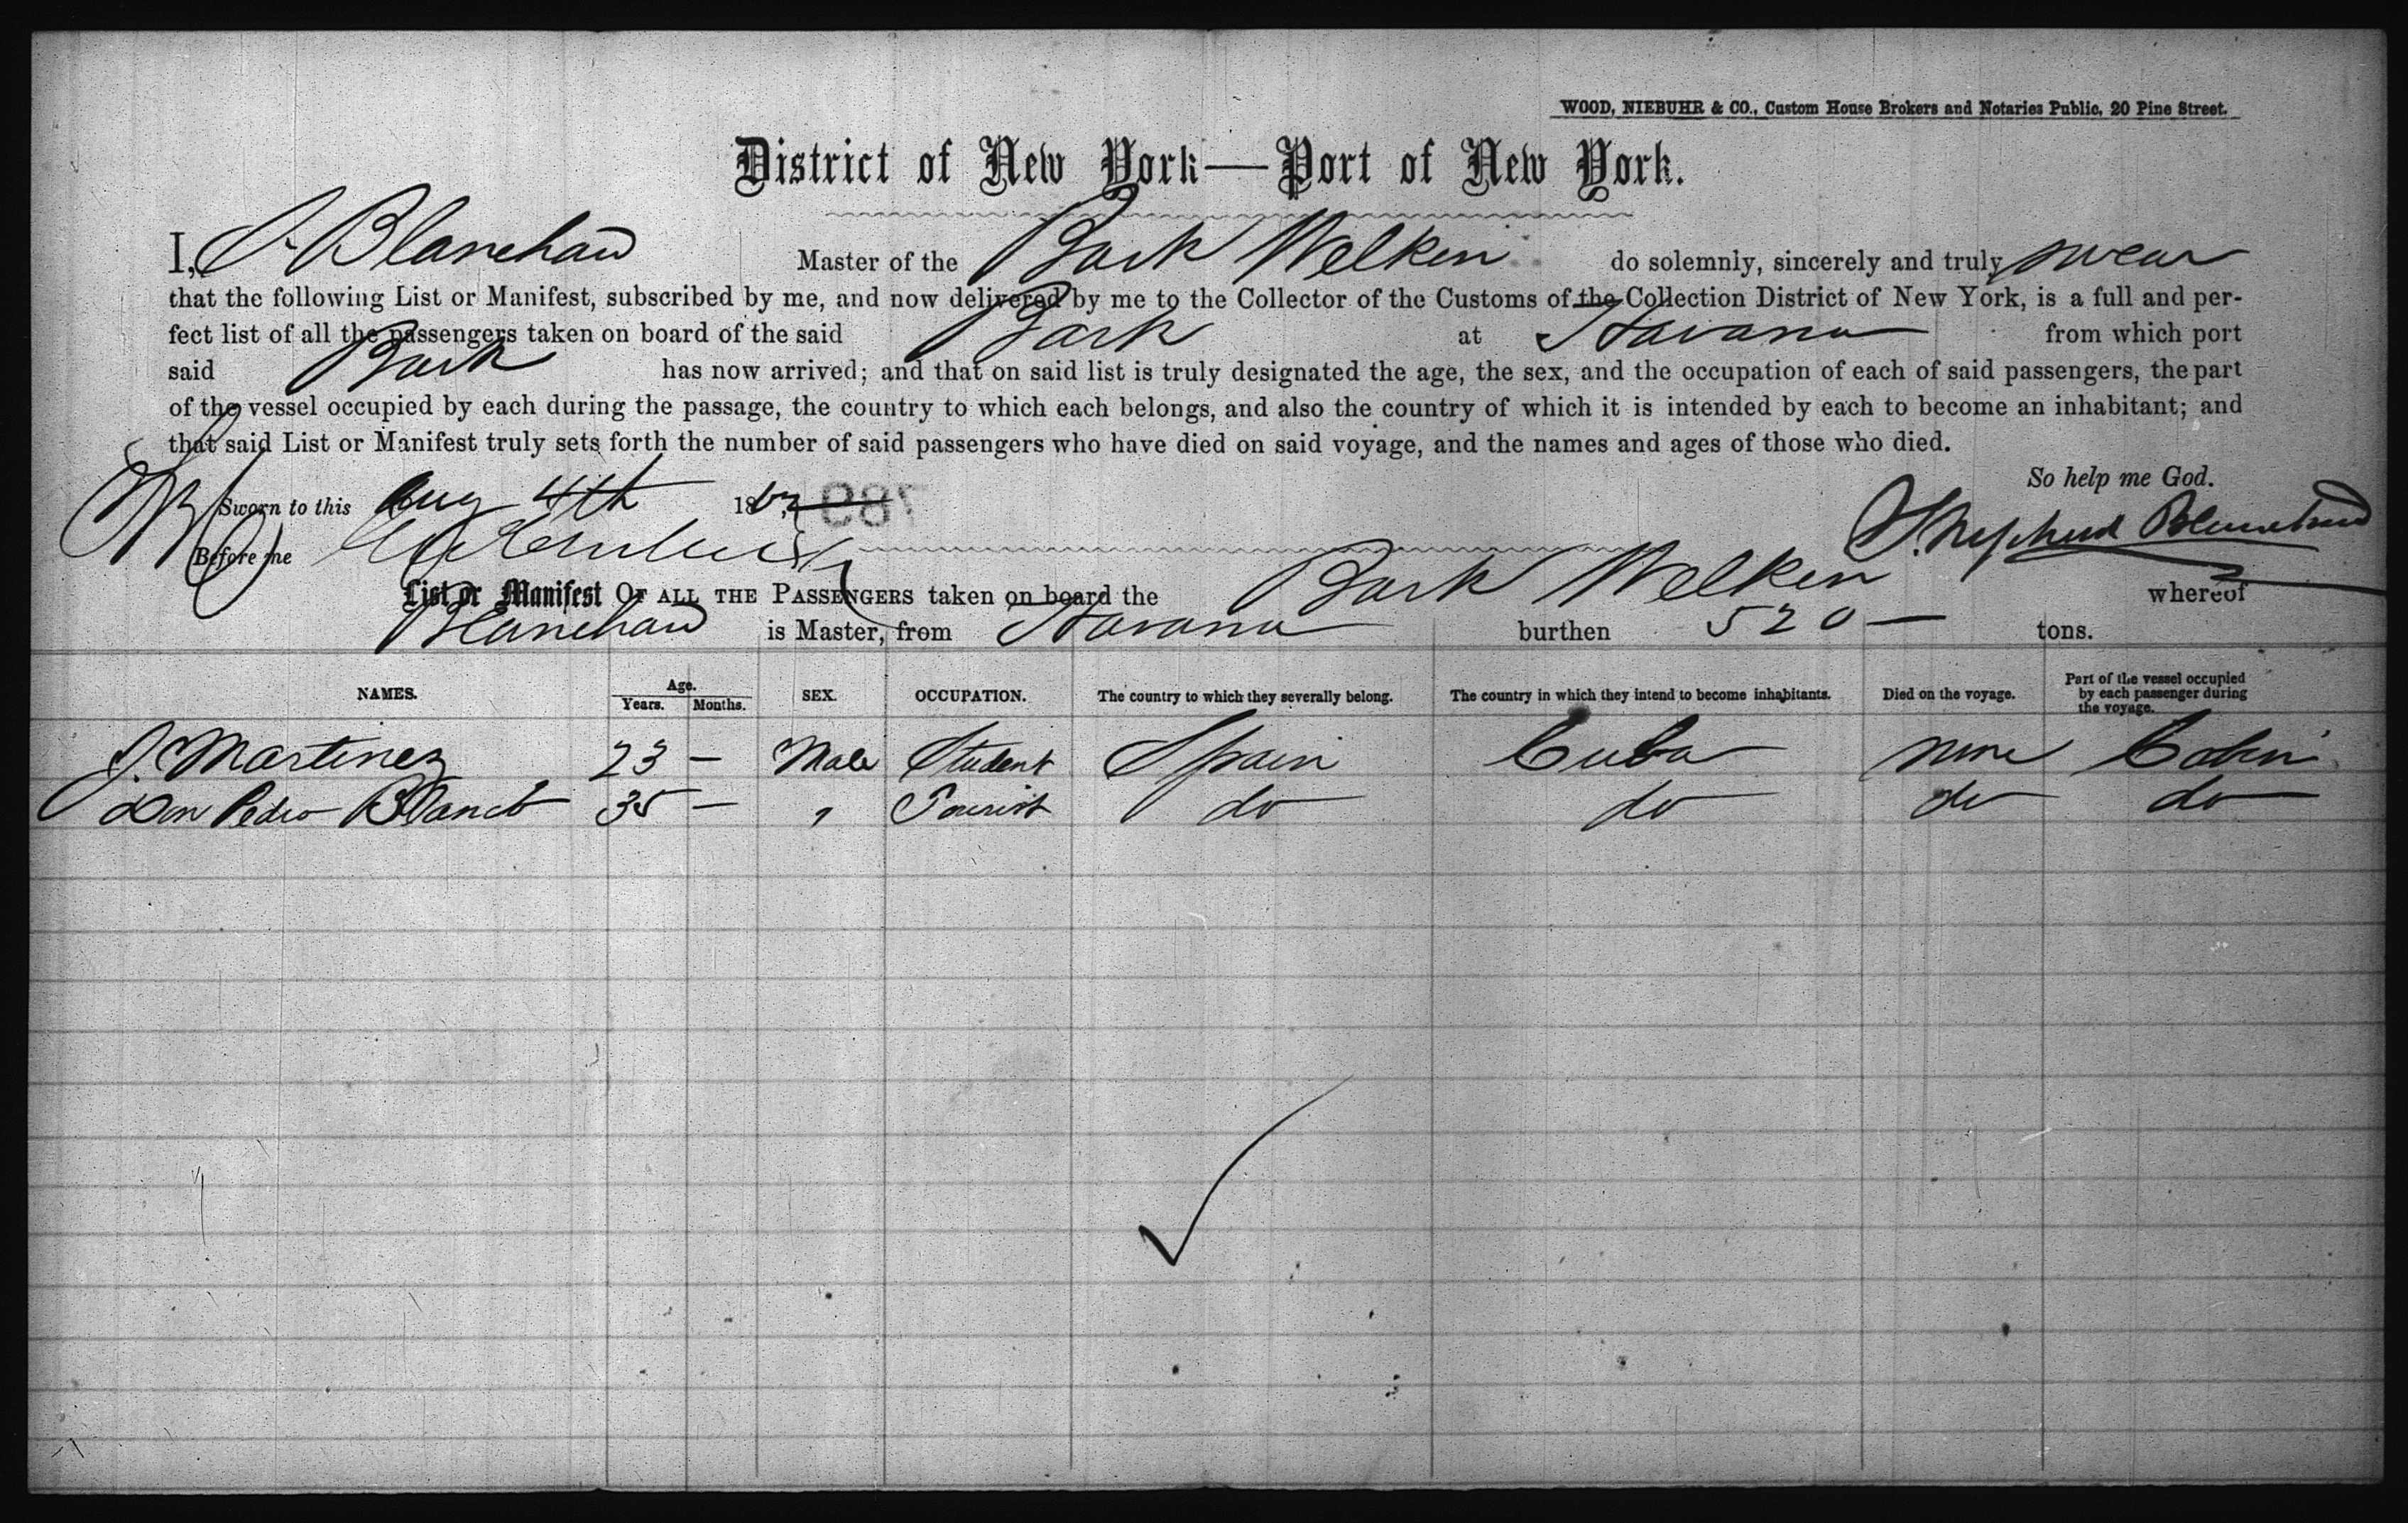 WOOD, NIEBUHR & CO., Custom House Brokers and Notaries Public, 20 Pine Street.
District of New York—Port of New York.
I, S. Blanchard Master of the Bark Welkin do solemnly, sincerely and truly swear
that the following List or Manifest, subscribed by me, and now delivered by me to the Collector of the Customs of the Collection District of New York, is a full and per-
fect list of all the passengers taken on board of the said Bark at Havana from which port
said Bark has now arrived; and that on said list is truly designated the age, the sex, and the occupation of each of said passengers, the part
of the vessel occupied by each during the passage, the country to which each belongs, and also the country of which it is intended by each to become an inhabitant; and
that said List or Manifest truly sets forth the number of said passengers who have died on said voyage, and the names and ages of those who died.
So help me God.
Sworn to this Aug 4th 18 789
Shepherd Blanchard
Before me
List or Manifest OF ALL THE PASSENGERS taken on board the Bark Welkin whereof
Blanchard is Master, from Havana burthen 520 — tons.
NAMES. Age. Years. Months. SEX. OCCUPATION. The country to which they severally belong. The country in which they intend to become inhabitants. Died on the voyage. Part of the vessel occupied by each passenger during the voyage.
J. Martinez 23 — Male Student Spain Cuba none Cabin
Don Pedro Blanco 35 — " Tourist do do do do